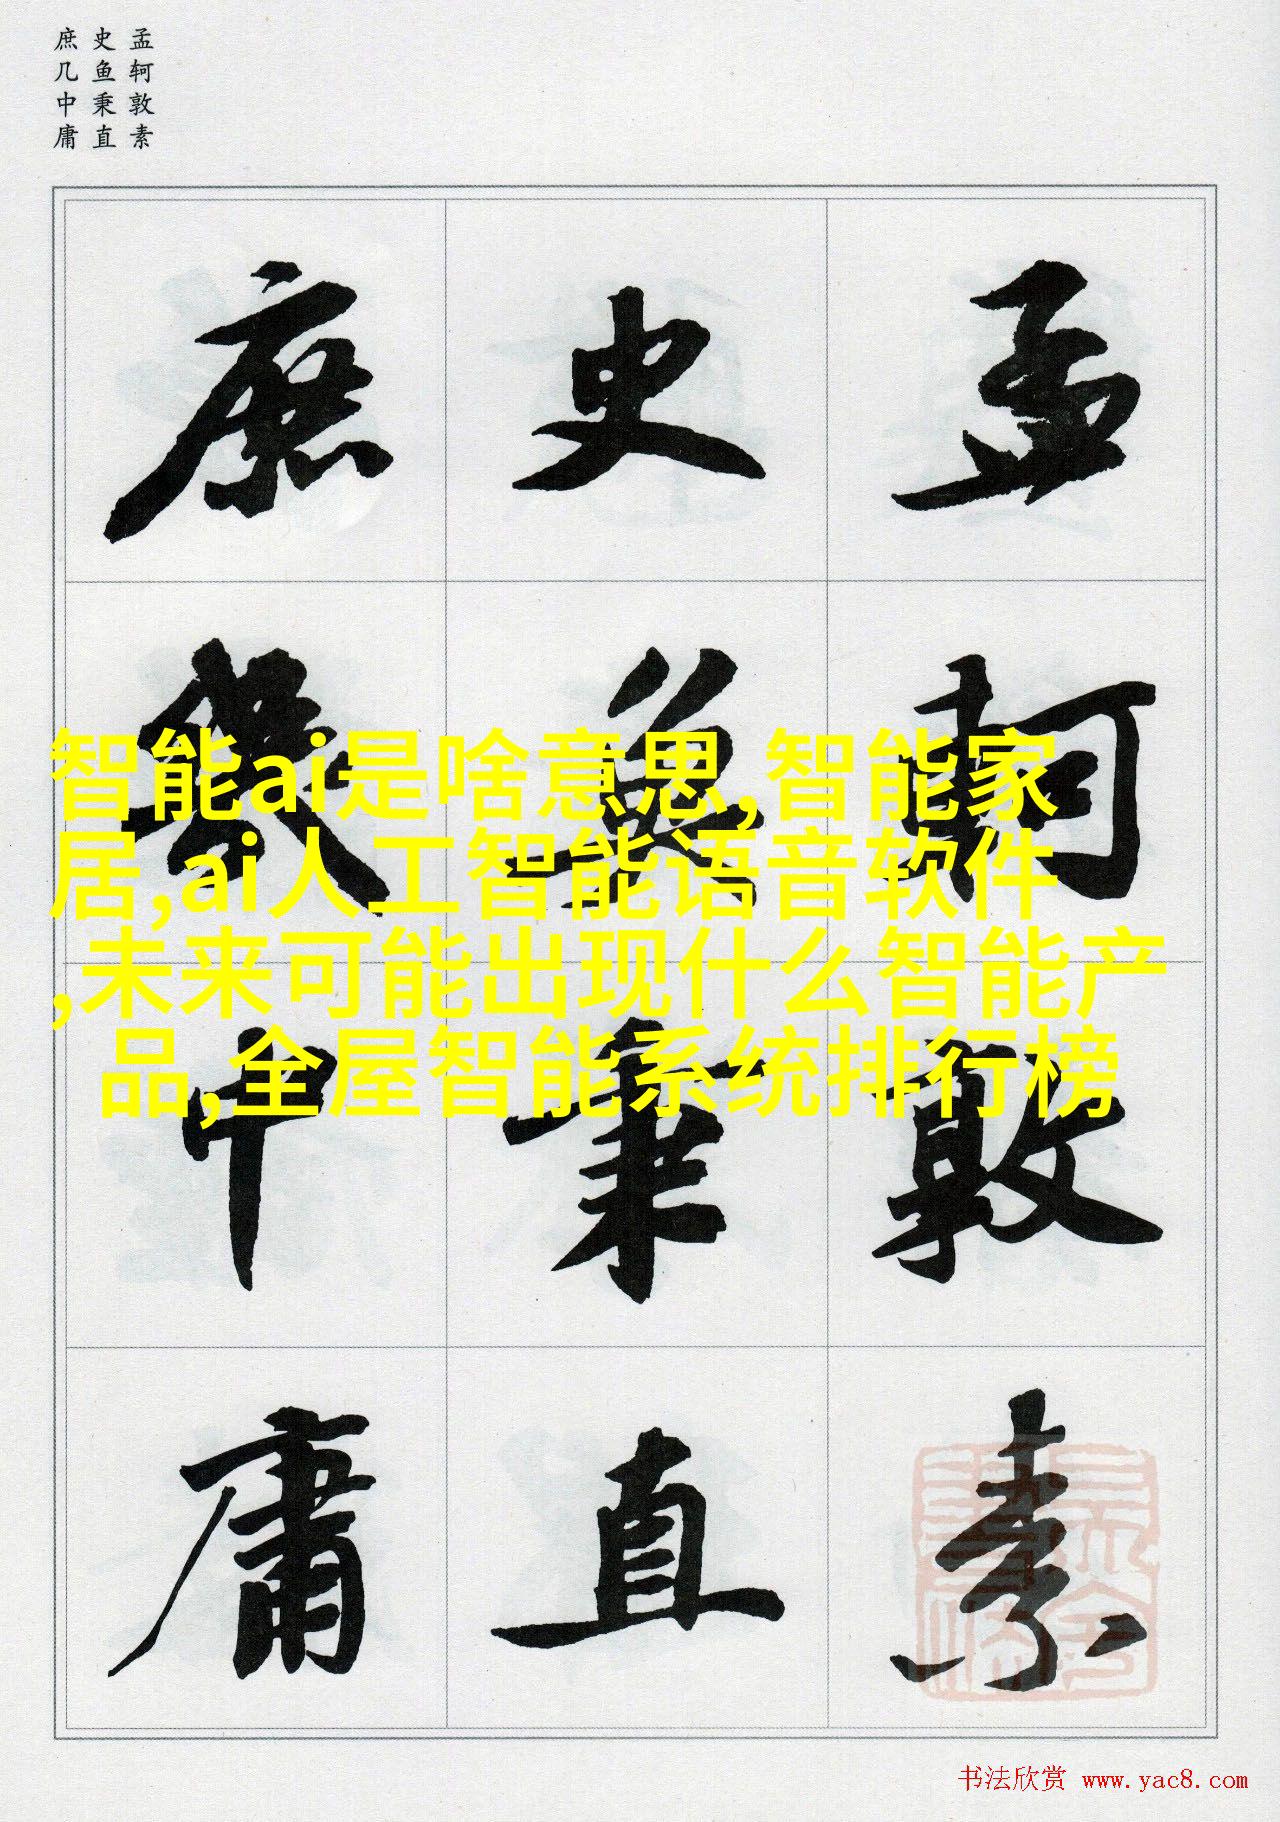 孟轲敦素
史鱼秉直
庶几中庸
孟轲敦素
史魚秉直
庶幾中庸
智能ai是啥意思,智能家
居,ai人工智能语音软件
,未来可能出现什么智能产
品,全屋智能系统排行榜
书法欣赏 www.yac8.com